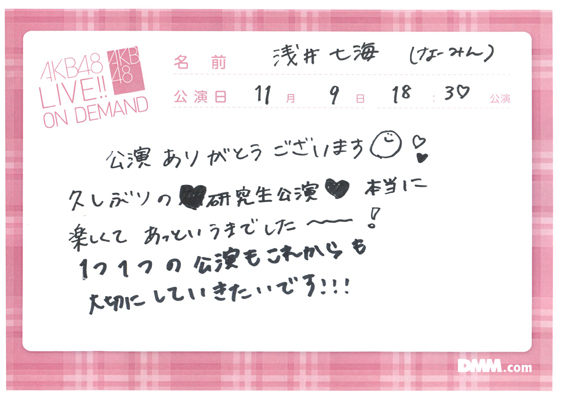 AKB48
LIVE!!
ON DEMAND
AKB
48
名前 浅井七海 (なーみん)
公演日 11月 9日 18:30 公演
公演ありがとうございます
久しぶりの♥研究生公演♥本当に
楽しくてあっというまでした〜〜!
1つ1つの公演もこれからも
大切にしていきたいです!!!
DMM.com